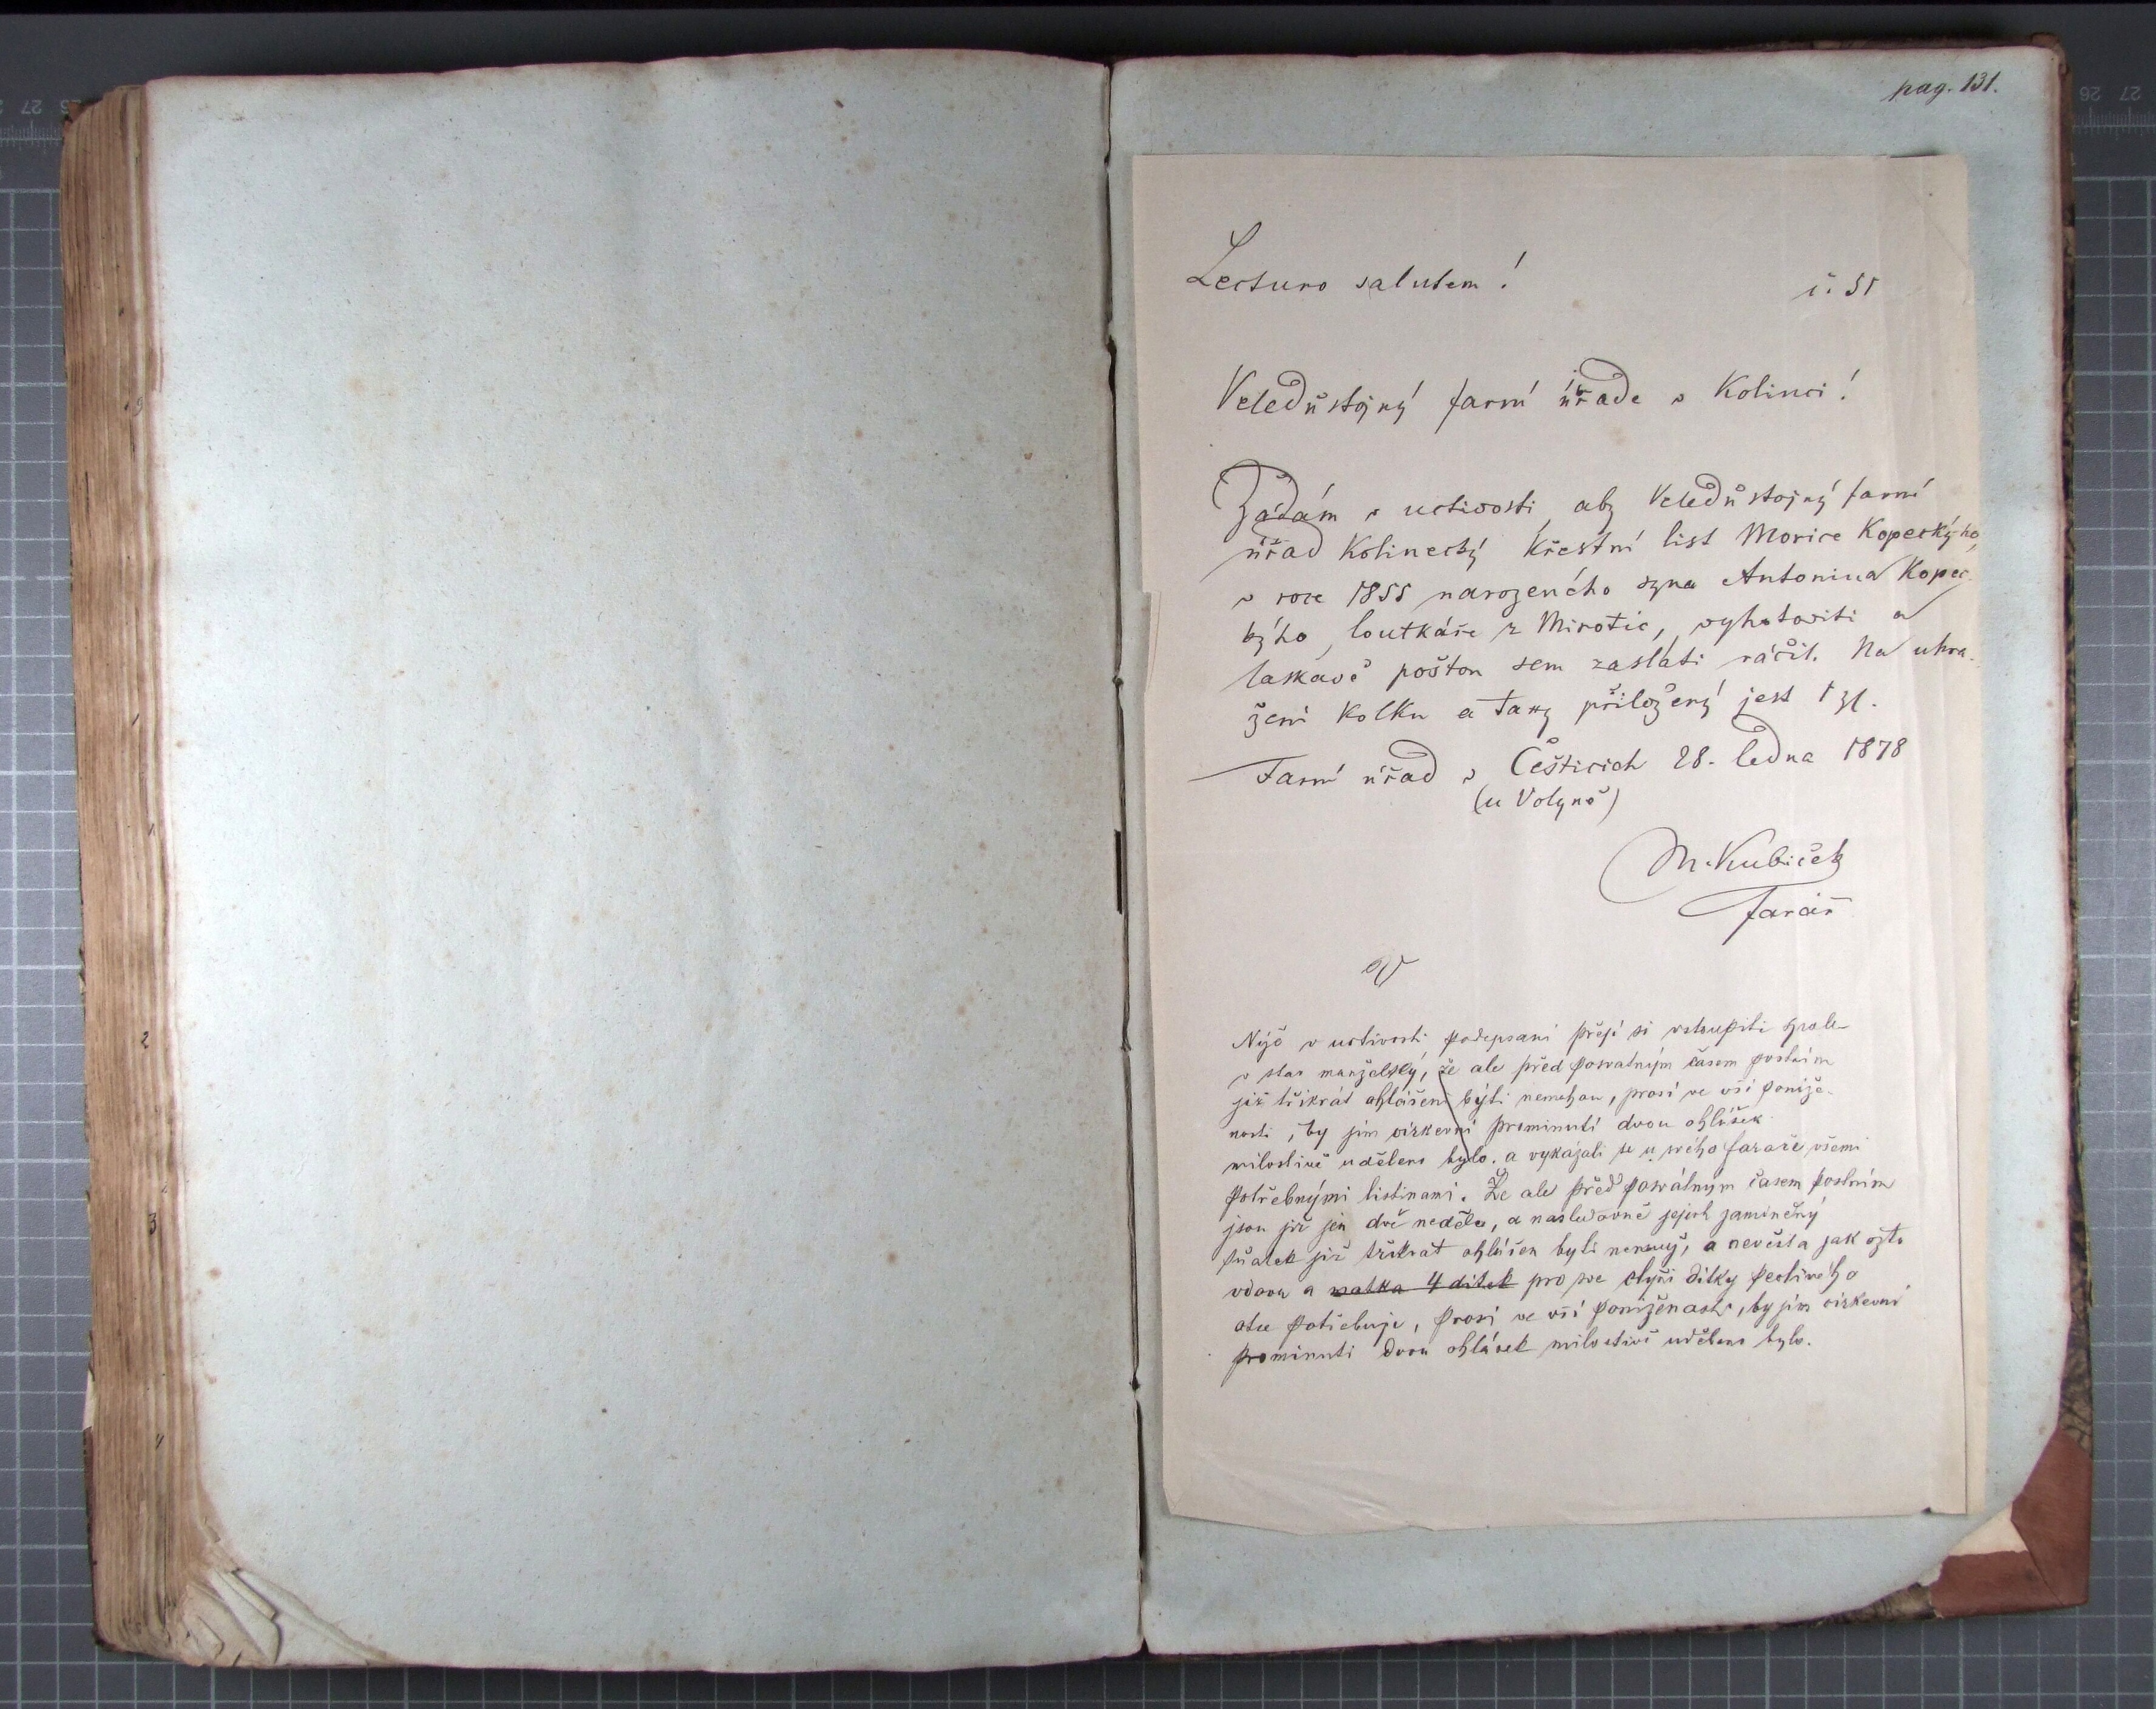 pag. 131.
Lecturo salutem!
č. 51
Veledůstojný farní úřade v Kolinci!
Žádám v uctivosti, aby Veledůstojný farní
úřad Kolinecký křestní list Morice Kopeckýho,
v roce 1855 narozeného syna Antonina Kopec-
kýho, loutkáře z Mirotic, vyhotoviti a
laskavě poštou sem zaslati ráčil. Na uhra-
žení kolku a taxy přiložený jest 1 zl.
Farní úřad v Češticích 28. ledna 1878
(u Volyně)
M. Kubíček
farář
Níže v uctivosti podepsaní přejí si vstoupiti
v stav manželský, že ale před posvátným časem postním
již třikrát ohlášeni býti nemohou, prosí ve vší poníže-
nosti, by jim církevní prominutí dvou ohlášek
milostivě uděleno bylo. a vykázali se u svého faráře všemi
potřebnými listinami. Že ale před posvátným časem postním
jsou již jen dvě neděle, a následovně jejich zamíněný
sňatek již třikrát ohlášen býti nemůž, a nevěsta jak ožto
vdova a matka 4 dítek pro své čtyři dítky pečlivého
otce potřebuje, prosí ve vší poníženosti, by jim církevní
prominutí dvou ohlášek milostivě uděleno bylo.
1
1
2
3
4